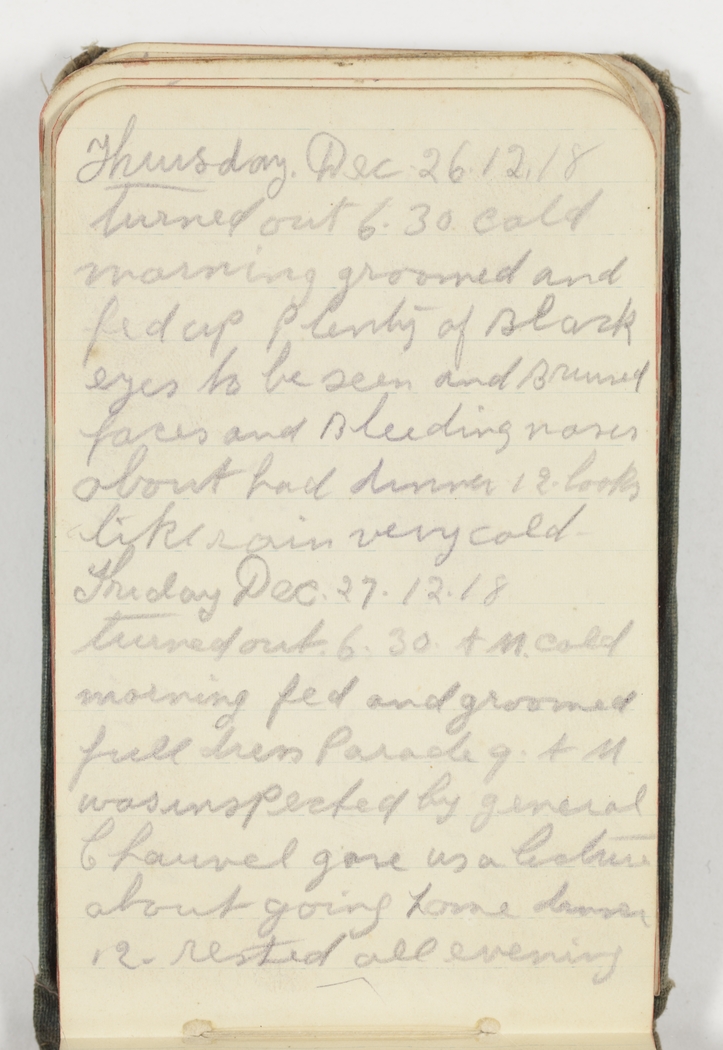 Thursday. Dec. 26.12.18
turned out 6.30. cold
morning groomed and
fed up Plenty of Black
eyes to be seen and Bruised
faces and Bleeding noses
about had dinner 12. looks
like rain very cold
Friday Dec. 27.12.18
turned out. 6.30. A M. cold
morning fed and groomed
full dress Parade 9. A M
was inspected by general
Chauvel gave us a lecture
about going home dinner
12. rested all evening